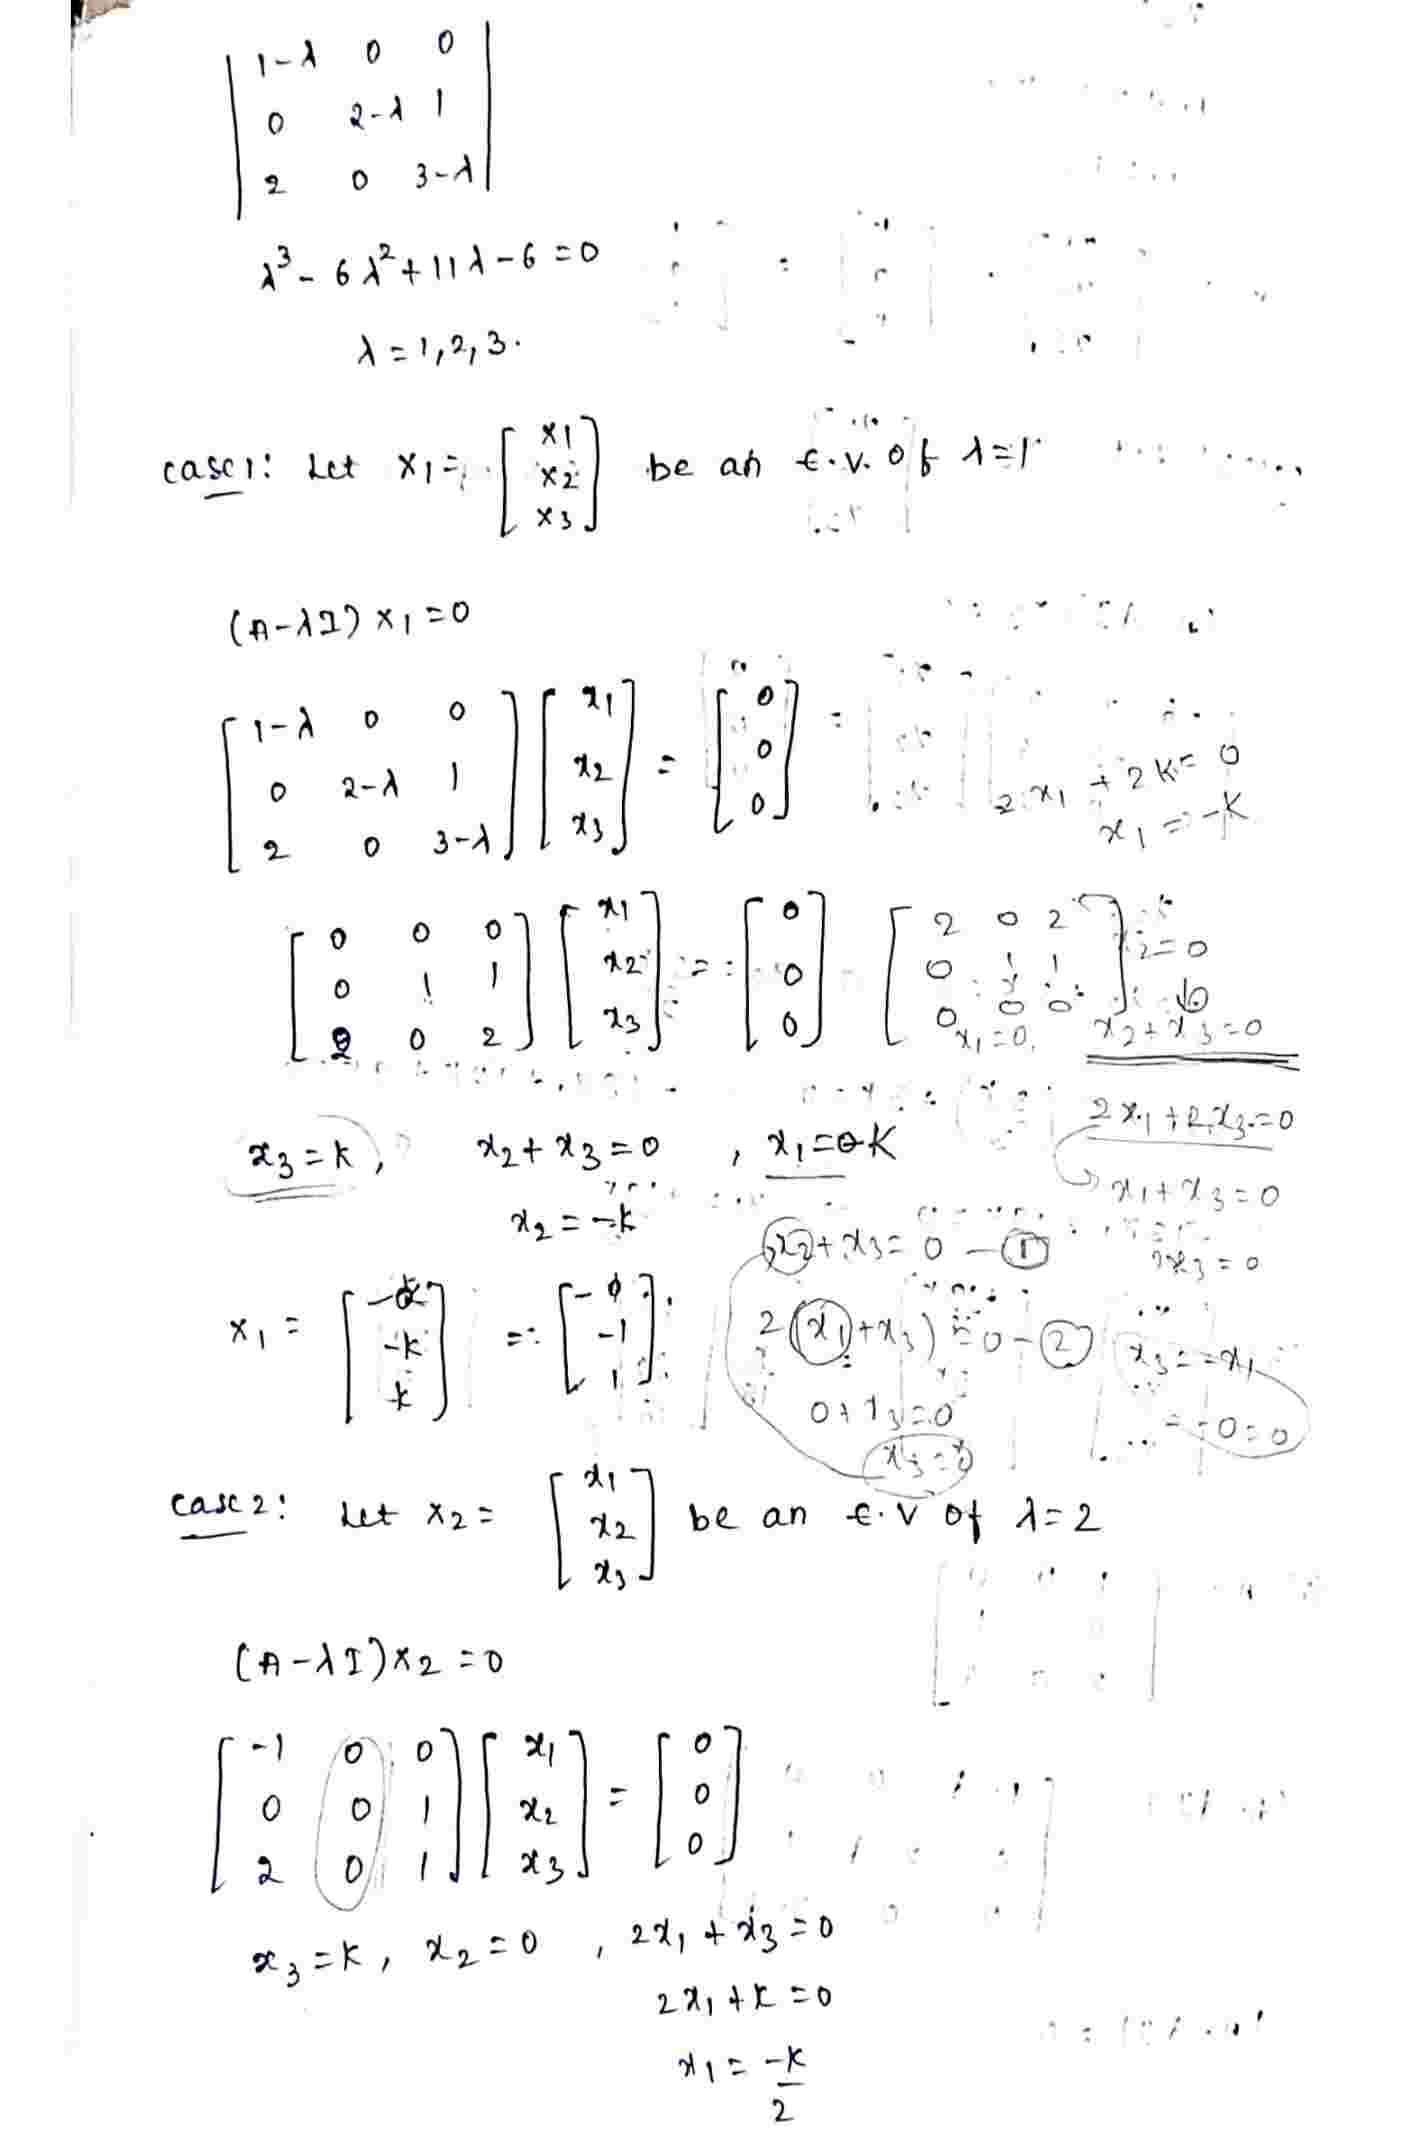 | 1-λ 0 0 |
| 0 2-λ 1 |
| 2 0 3-λ |
λ³ - 6λ² + 11λ - 6 = 0
λ = 1, 2, 3.
case1: Let x₁ = [x₁ x₂ x₃] be an E.V. of λ=1
(A-λI) x₁ = 0
[1-λ 0 0
0 2-λ 1
2 0 3-λ] [x₁ x₂ x₃] = [0 0 0]
2x₁ + 2k = 0
x₁ = -k
[0 0 0
0 1 1
2 0 2] [x₁ x₂ x₃] = [0 0 0]
[2 0 2
0 1 1
0 0 0]
x₁ = 0,
x₂ + x₃ = 0
2x₁ + 2x₃ = 0
x₁ + x₃ = 0
x₃ = k, x₂ + x₃ = 0, x₁ = -k
x₂ = -k
x₂ + x₃ = 0 - ①
2(x₁ + x₃) = 0 - ②
x₃ = -x₁
= -0 = 0
0 + x₃ = 0
x₁ = [-k -k k] = [- -1 1]
case 2: Let x₂ = [x₁ x₂ x₃] be an E.V of λ=2
(A-λI) x₂ = 0
[-1 0 0
0 0 1
2 0 1] [x₁ x₂ x₃] = [0 0 0]
x₃ = k, x₂ = 0, 2x₁ + x₃ = 0
2x₁ + k = 0
x₁ = -k/2